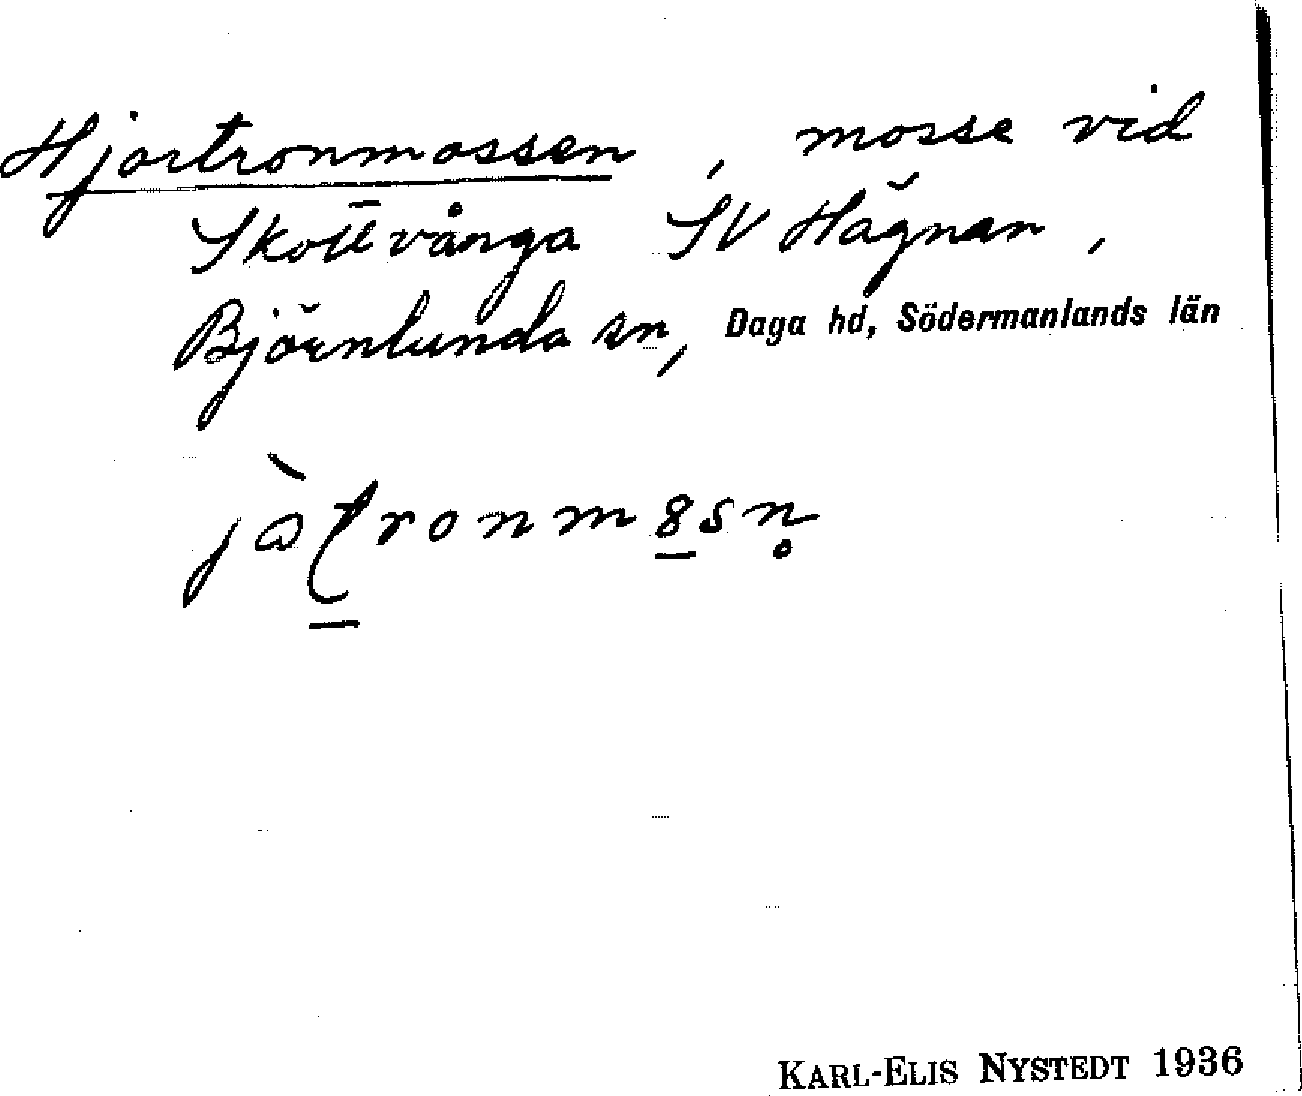 Hjortronmossen, mosse vid
Skottvånga SV Hägnan,
Björnlunda sn, Daga hd, Södermanlands län
KARL-ELIS NYSTEDT 1936